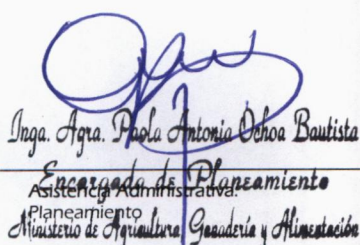 Inga. Agra. Paola Antonia Ochoa Bautista
Encargada de Planeamiento
Asistencia Administrativa.
Planeamiento
Ministerio de Agricultura Ganadería y Alimentación